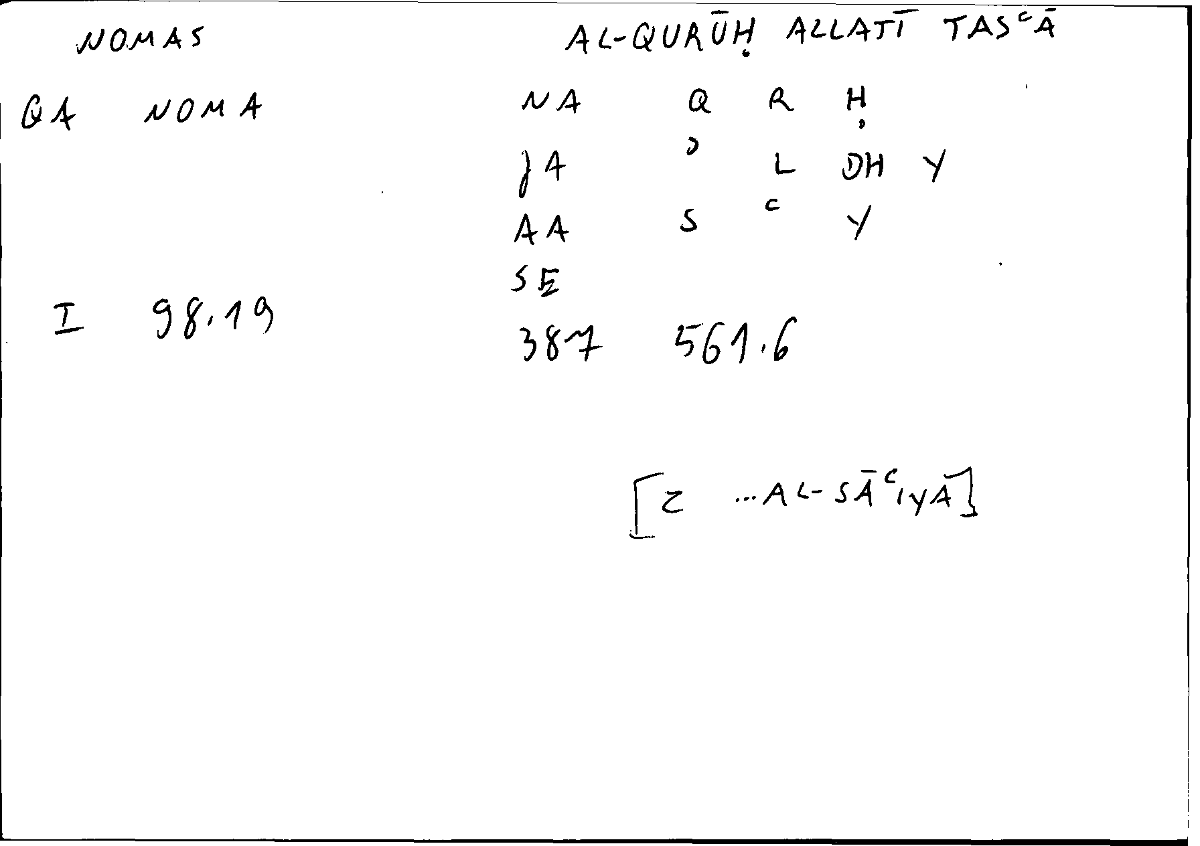 NOMAS AL-QURŪḤ ALLATĪ TASʿĀ
QA NOMA NA Q R Ḥ
JA ʾ L DH Y
AA S ʿ Y
SE
I 98.19 387 561.6
[Z ...AL-SĀʿIYĀ]